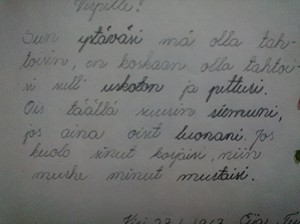 Sirpille!
Sun ystäväsi mä olla tah-
toisin, en koskaan olla tahtoi-
si sulle uskoton ja pettusi.
Ois täällä suurin riemuni,
jos aina oisit luonani. Jos
kuolo sinut korjaisi, niin
murhe minut mustaisi.